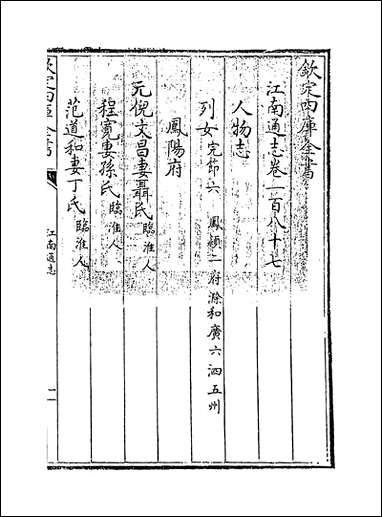 欽定四庫全書
江南通志卷一百八十七
人物志
列女完節六 鳳穎二府滁和廣六泗五州
鳳陽府
元倪文昌妻聶氏臨淮人
程寛妻孫氏臨淮人
范道和妻丁氏臨淮人
欽定四庫全書
江南通志